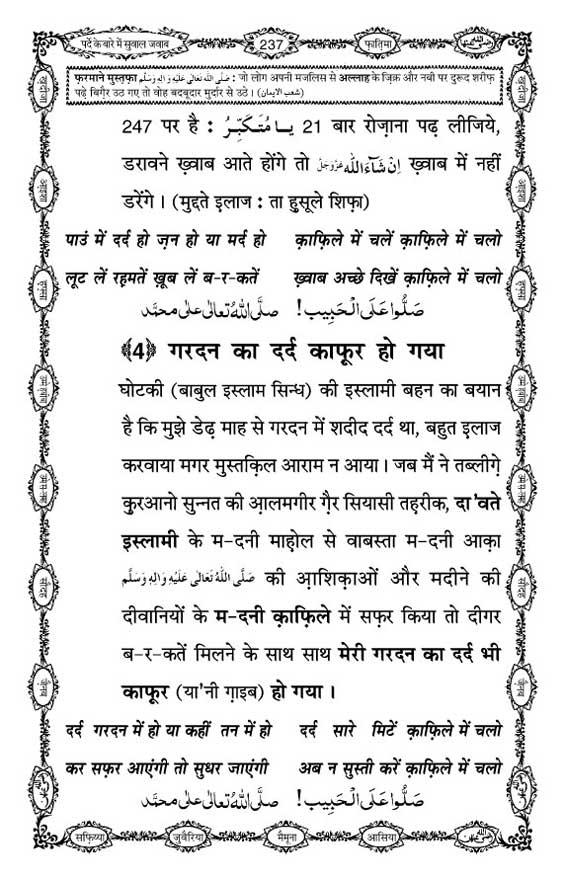 पर्दे के बारे में सुवाल जवाब 237 फ़ातिमा
फ़रमाने मुस्तफ़ा صَلَّى اللهُ تَعَالٰى عَلَيْهِ وَاٰلِهٖ وَسَلَّم : जो लोग अपनी मजलिस से अल्लाह के ज़िक्र और नबी पर दुरूद शरीफ़
पढ़े बिग़ैर उठ गए तो वोह बदबूदार मुर्दार से उठे। (شعب الایمان)
247 पर है : يَا مُتَكَبِّرُ 21 बार रोज़ाना पढ़ लीजिये,
डरावने ख़्वाब आते होंगे तो اِنْ شَآءَ اللّٰه عَزَّوَجَلَّ ख़्वाब में नहीं
डरेंगे। (मुद्दते इलाज : ता हुसूले शिफ़ा)
पाउं में दर्द हो ज़न हो या मर्द हो क़ाफ़िले में चलें क़ाफ़िले में चलो
लूट लें रहमतें ख़ूब लें ब-र-कतें ख़्वाब अच्छे दिखें क़ाफ़िले में चलो
صَلُّوا عَلَى الْحَبِيب! صلَّى اللهُ تعالٰى على محمَّد
﴾4﴿ गरदन का दर्द काफूर हो गया
घोटकी (बाबुल इस्लाम सिन्ध) की इस्लामी बहन का बयान
है कि मुझे डेढ़ माह से गरदन में शदीद दर्द था, बहुत इलाज
करवाया मगर मुस्तक़िल आराम न आया। जब मैं ने तब्लीग़े
कुरआनो सुन्नत की आ़लमगीर ग़ैर सियासी तहरीक, दा'वते
इस्लामी के म-दनी माहोल से वाबस्ता म-दनी आक़ा
صَلَّى اللهُ تَعَالٰى عَلَيْهِ وَاٰلِهٖ وَسَلَّم की आ़शिक़ाओं और मदीने की
दीवानियों के म-दनी क़ाफ़िले में सफ़र किया तो दीगर
ब-र-कतें मिलने के साथ साथ मेरी गरदन का दर्द भी
काफूर (या'नी ग़ाइब) हो गया।
दर्द गरदन में हो या कहीं तन में हो दर्द सारे मिटें क़ाफ़िले में चलो
कर सफ़र आएंगी तो सुधर जाएंगी अब न सुस्ती करें क़ाफ़िले में चलो
صَلُّوا عَلَى الْحَبِيب! صلَّى اللهُ تعالٰى على محمَّد
सफ़िय्या जुवैरिया मैमूना आसिया